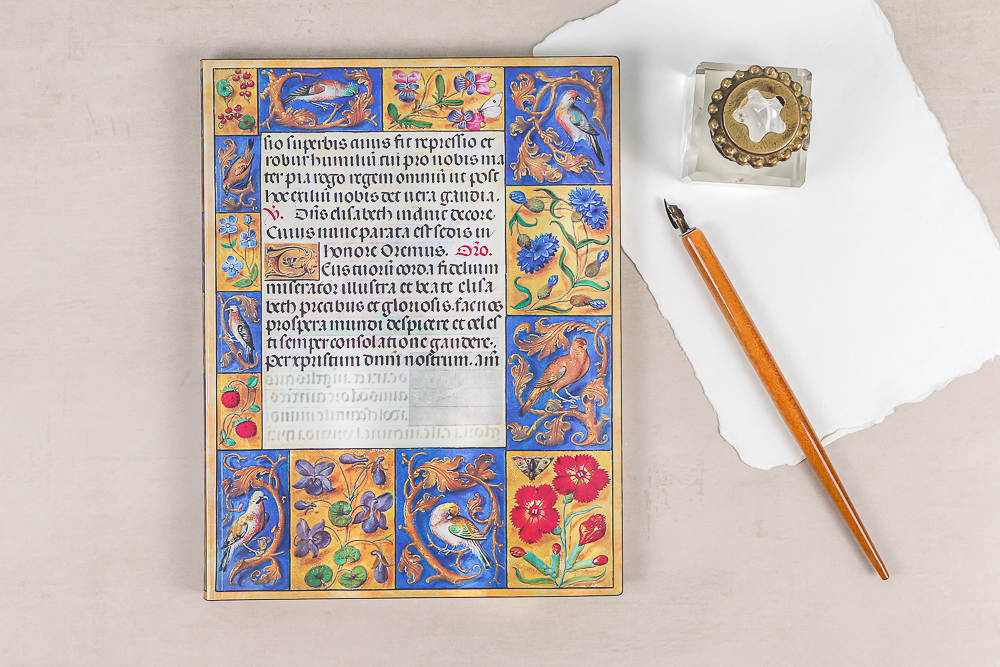 sio superbis cuius fit repressio et
robur humiliū cui pro nobis ma
ter pia rogo regem omniū ut post
hoc exiliū nobis det vera gaudia.
℣. Diis elisabeth induit decore.
Cuius nunc parata est sedis in
honore Oremus. Oro.
Tuorū corda fidelium
miserator illustra et beate elisa
beth precibus et gloriosis. fac nos
prospera mundi despicere et celes
ti semper consolatione gaudere.
Per xpristum dnm nostrum. am